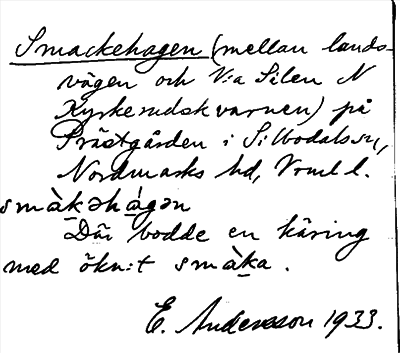 Smackehagen (mellan lands-
vägen och V:a Silen N
Kyrkerudskvarnen) på
Prästgården i Sillbodals sn,
Nordmarks hd, Vrml l.
smàk̬əhág̬ən
Där bodde en käring
med ökn:t smàk̬a.
E. Andersson 1933.